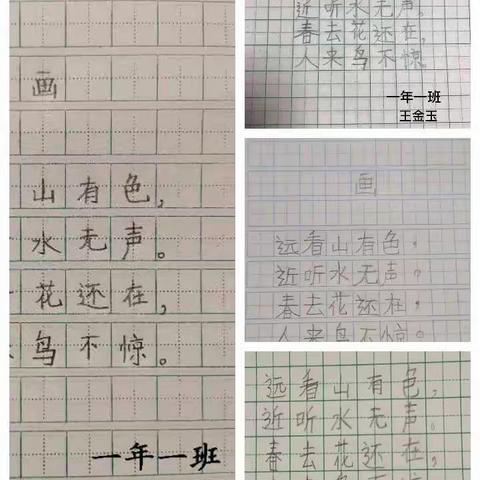 画
山有色，
水无声。
花还在，
鸟不惊。
一年一班
近听水无声。
春去花还在，
人来鸟不惊。
一年一班
王金玉
画
远看山有色，
近听水无声。
春去花还在，
人来鸟不惊。
远看山有色，
近听水无声。
春去花还在，